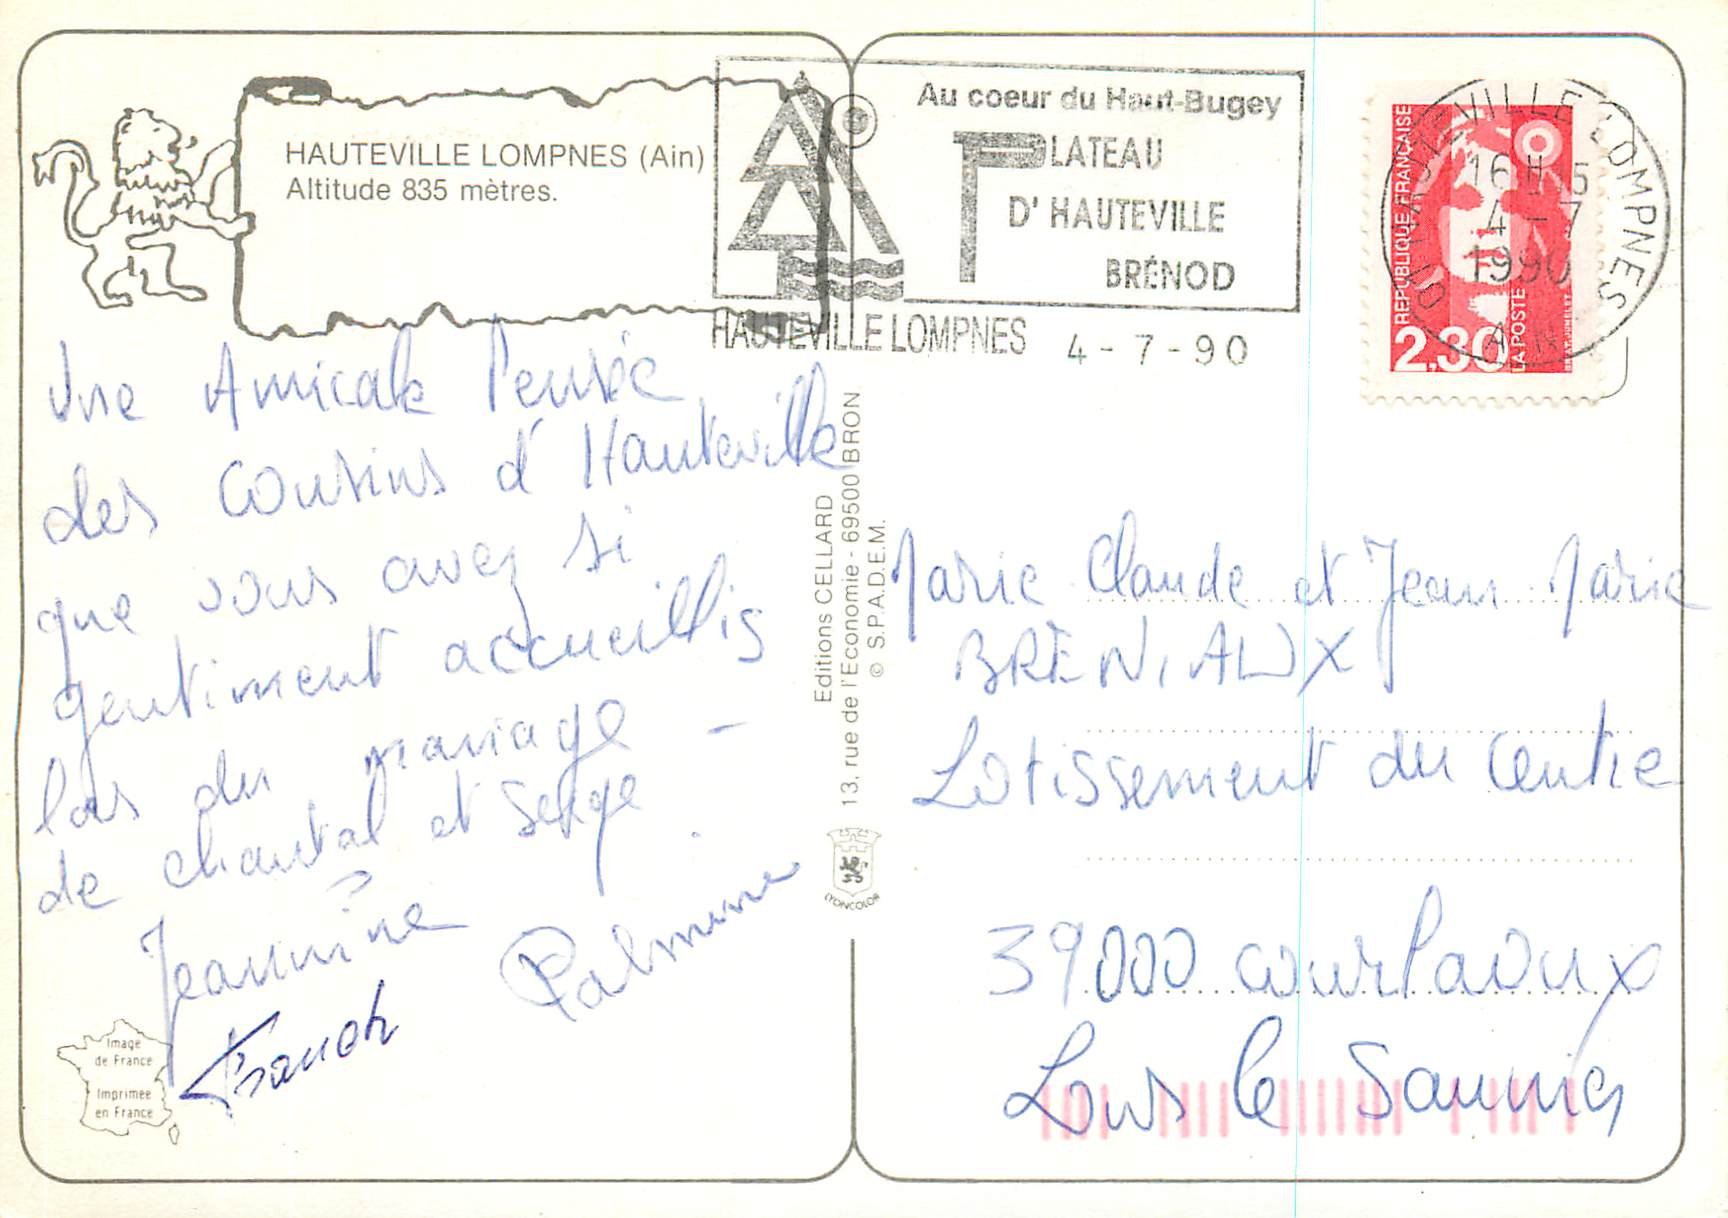 HAUTEVILLE LOMPNES (Ain)
Altitude 835 mètres.
Au coeur du Haut-Bugey
PLATEAU
D'HAUTEVILLE
BRÉNOD
HAUTEVILLE LOMPNES 4-7-90
REPUBLIQUE FRANÇAISE
2,30
LA POSTE
HAUTEVILLE LOMPNES
16H15
4-7
1990
AIN
Une Amicale Pensée
des cousins d'Hauteville
que vous avez si
gentiment accueillis
lors du mariage -
de chantal et Serge
Jeannine
Palmina
Editions CELLARD
13, rue de l'Economie - 69500 BRON
© S.P.A.D.E.M.
LYONCOLOR
Image
de France
Imprimée
en France
Marie Claude et Jean Marie
BRENIAUX
Lotissement du Centre
39000 courlaoux
Lons le Saunier